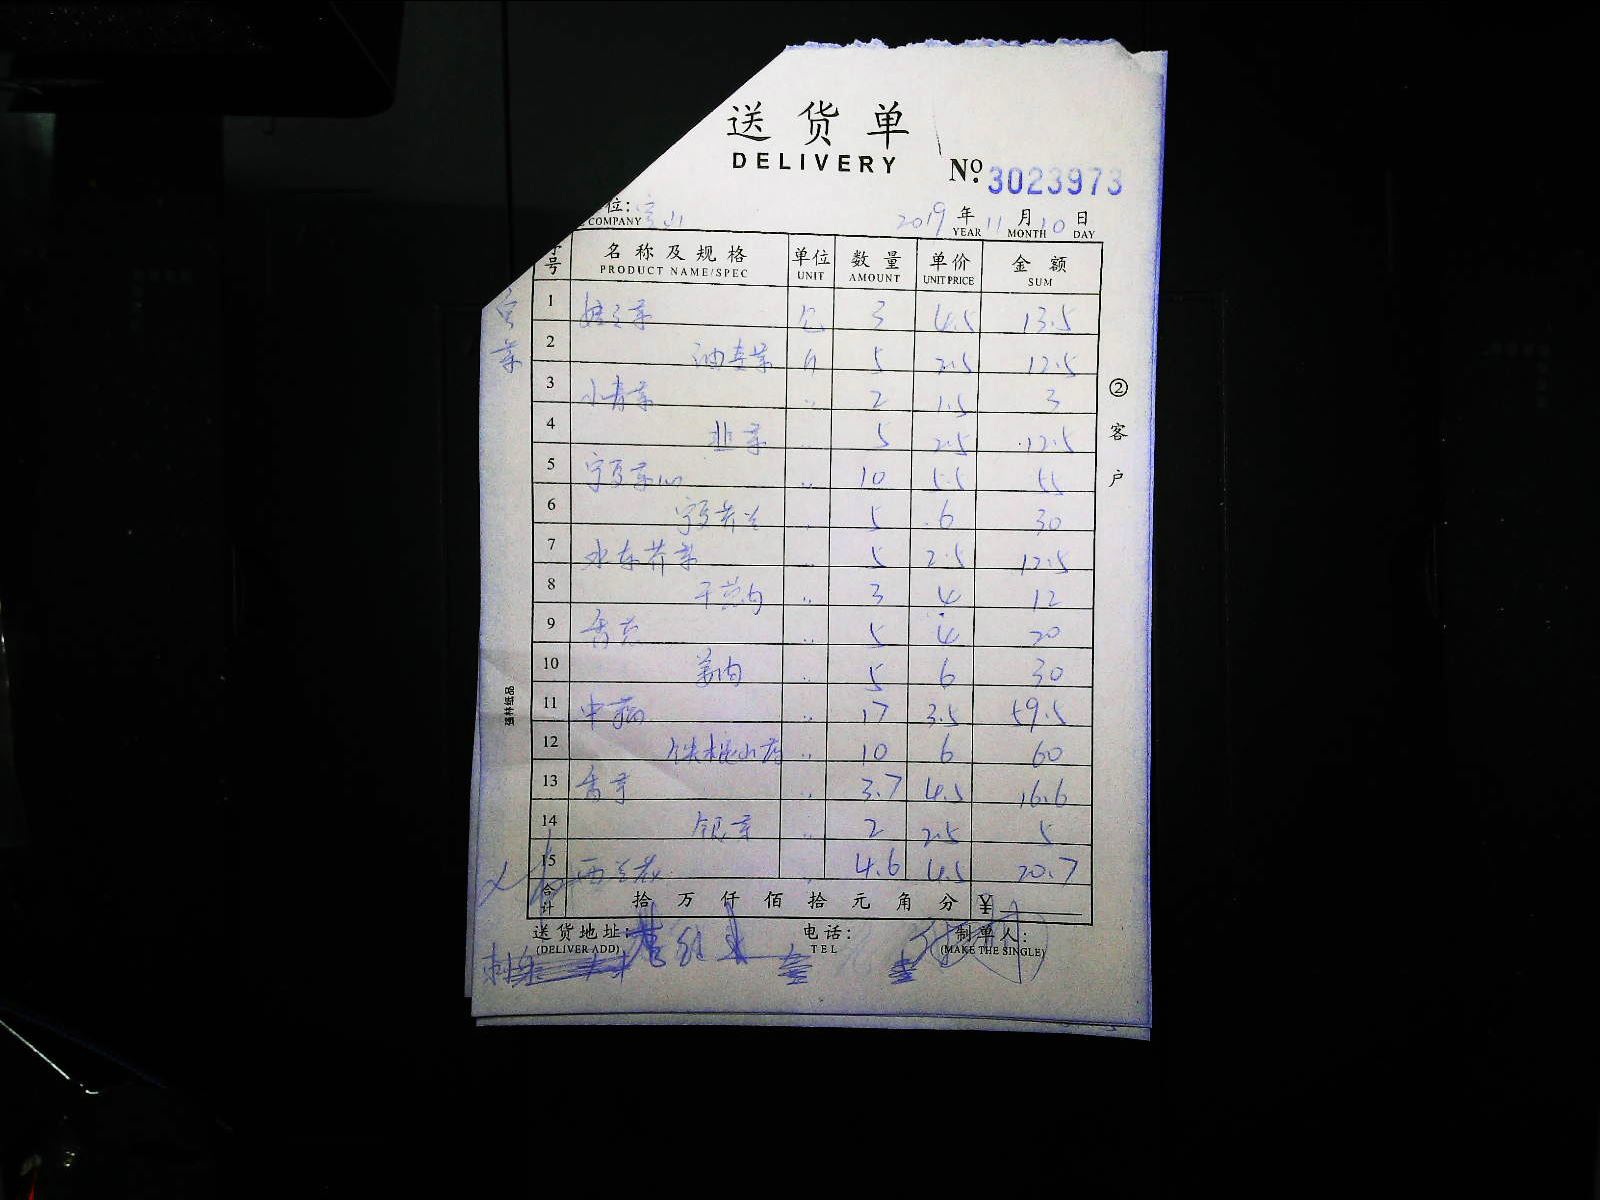 送货单
DELIVERY
No. 3023973
位: 宝山
COMPANY
2019 年 11 月 10 日
YEAR MONTH DAY
号 名称及规格 单位 数量 单价 金额
PRODUCT NAME/SPEC UNIT AMOUNT UNIT PRICE SUM
1 娃娃菜 包 3 4.5 13.5
2 油麦菜 斤 5 2.5 12.5
3 小青菜 〃 2 1.5 3
4 韭菜 〃 5 2.5 12.5
5 宁夏菜心 〃 10 5.5 55
6 宁夏芥兰 〃 5 6 30
7 水东芥菜 〃 5 2.5 12.5
8 干葱肉 〃 3 4 12
9 香芹 〃 5 4 20
10 姜肉 〃 5 6 30
11 中 〃 17 3.5 59.5
12 铁棍山药 〃 10 6 60
13 香芋 〃 3.7 4.5 16.6
14 银芽 〃 2 2.5 5
15 西兰花 〃 4.6 4.5 20.7
合计 拾 万 仟 佰 拾 元 角 分 ¥
送货地址: 电话: 制单人:
(DELIVER ADD) TEL (MAKE THE SINGLE)
②客户
强林纸品